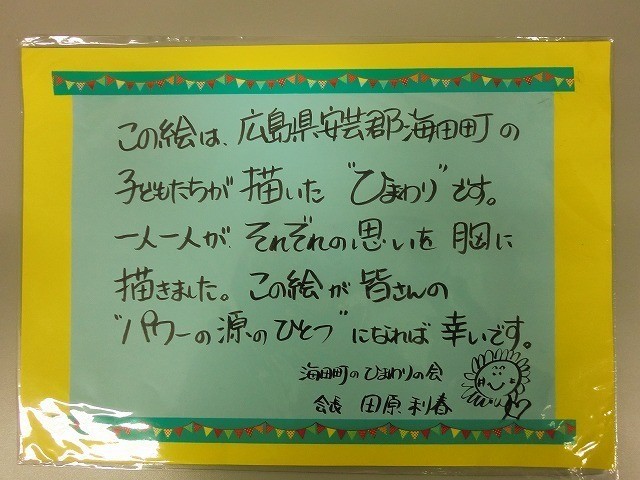 この絵は、広島県安芸郡海田町の
子どもたちが描いた"ひまわり"です。
一人一人が、それぞれの思いを胸に
描きました。この絵が皆さんの
"パワーの源のひとつ"になれば幸いです。
海田町のひまわりの会
会長 田原利春